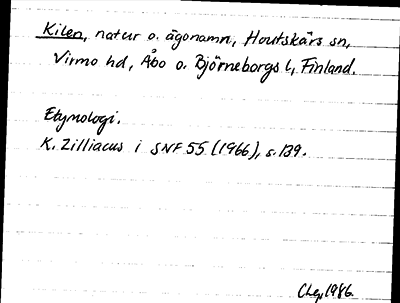 Kilen, natur o. ägonamn, Houtskärs sn,
Virmo hd, Åbo o. Björneborgs l, Finland.
Etymologi.
K. Zilliacus i SNF 55 (1966), s. 139.
1986